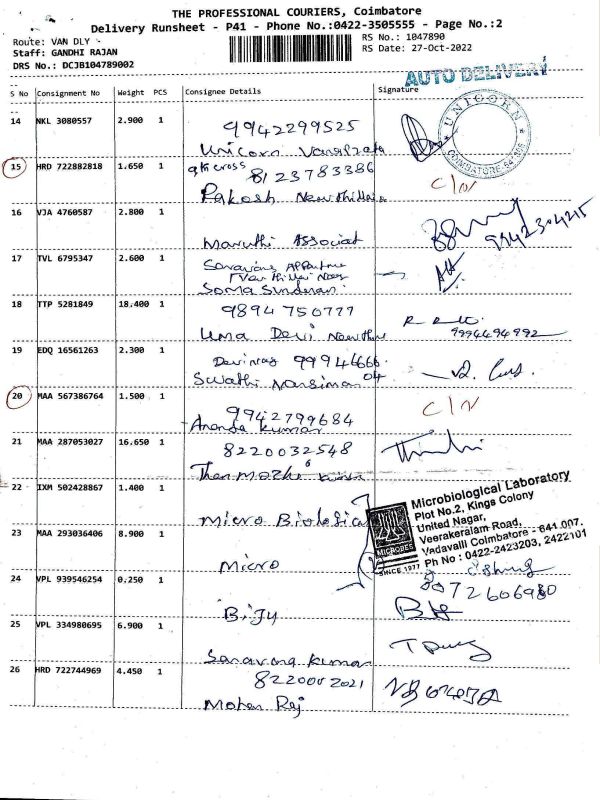 THE PROFESSIONAL COURIERS, Coimbatore
Delivery Runsheet - P41 - Phone No.:0422-3505555 - Page No.:2
Route: VAN DLY
Staff: GANDHI RAJAN
DRS No.: DCJB104789002
RS No.: 1047890
RS Date: 27-Oct-2022
AUTO DELIVERY
S No Consignment No Weight PCS Consignee Details Signature
14 NKL 3080557 2.900 1 9942299525
Unicorn
UNICORN
COIMBATORE
15 HRD 722882818 1.650 1 9th cross 8123783386
C/N
16 VJA 4760587 2.800 1
Maruthi Associat
9942304215
17 TVL 6795347 2.600 1
Soma Sundaram
18 TTP 5281849 18.400 1 9894750777
Uma Devi
9994494992
19 EDQ 16561263 2.300 1 Deviraj 99946666
04
Swathi
20 MAA 567386764 1.500 1 9942799684
C/N
Ananda Kumar
21 MAA 287053027 16.650 1 8220032548
Then Mozhi
22 IXM 502428867 1.400 1
Micro Biological
Microbiological Laboratory
Plot No.2, Kings Colony
United Nagar,
Veerakeralam Road,
Vadavalli Coimbatore - 641 007.
Ph No : 0422-2423203, 2422101
MICROBES
SINCE 1977
23 MAA 293036406 8.900 1
Micro
24 VPL 939546254 0.250 1
8072606980
Biju
25 VPL 334980695 6.900 1
Saravana Kumar
26 HRD 722744969 4.450 1 8220002021
Mohan Raj